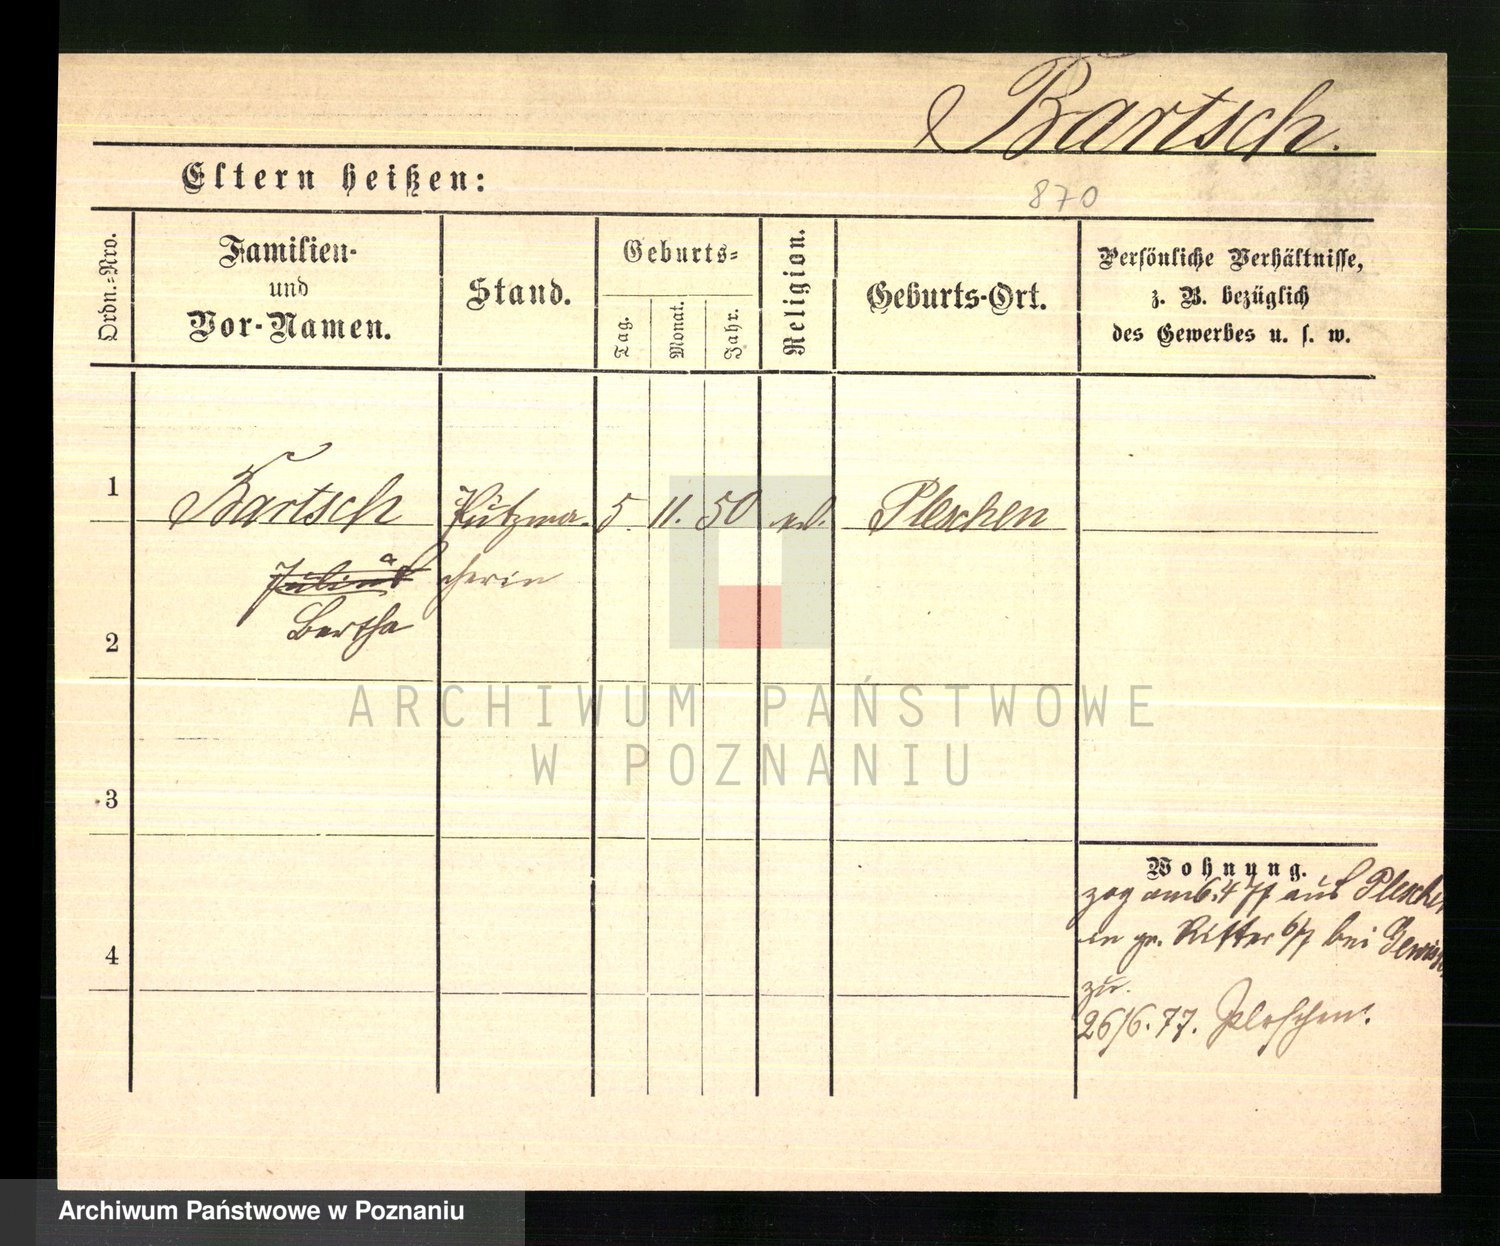 Bartsch.
Eltern heißen:
870
Ordn.=Nro.
Familien-
und
Vor-Namen.
Stand.
Geburts=
Tag.
Monat.
Jahr.
Religion.
Geburts-Ort.
Persönliche Verhältnisse,
z. B. bezüglich
des Gewerbes u. s. w.
1
Bartsch Putzma- 5. 11. 50 ev. Pleschen
cherin
Bertha
2
3
4
Wohnung.
zog am 6.4 77 aus Pleschen
in gr. Ritter 6/7 bei
zu.
26/6. 77. Pleschen.
ARCHIWUM PAŃSTWOWE
W POZNANIU
Archiwum Państwowe w Poznaniu